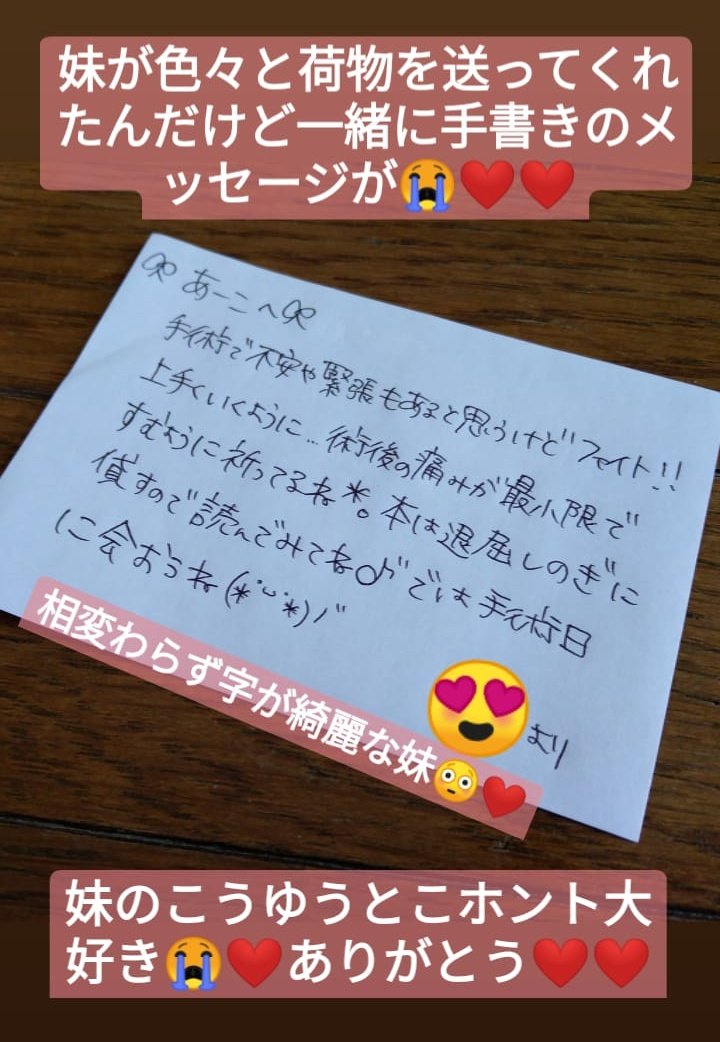 妹が色々と荷物を送ってくれ
たんだけど一緒に手書きのメ
ッセージが😭❤️❤️
あーこへ
手術で不安や緊張もあると思うけどファイト!!
上手くいくように…術後の痛みが最小限で
すむように祈ってるね*。本は退屈しのぎに
貸すので読んでみてね♪では手術日
に会おうね(*˙˘˙*)ﾉﾞ
より
相変わらず字が綺麗な妹😳❤️
妹のこうゆうとこホント大
好き😭❤️ありがとう❤️❤️